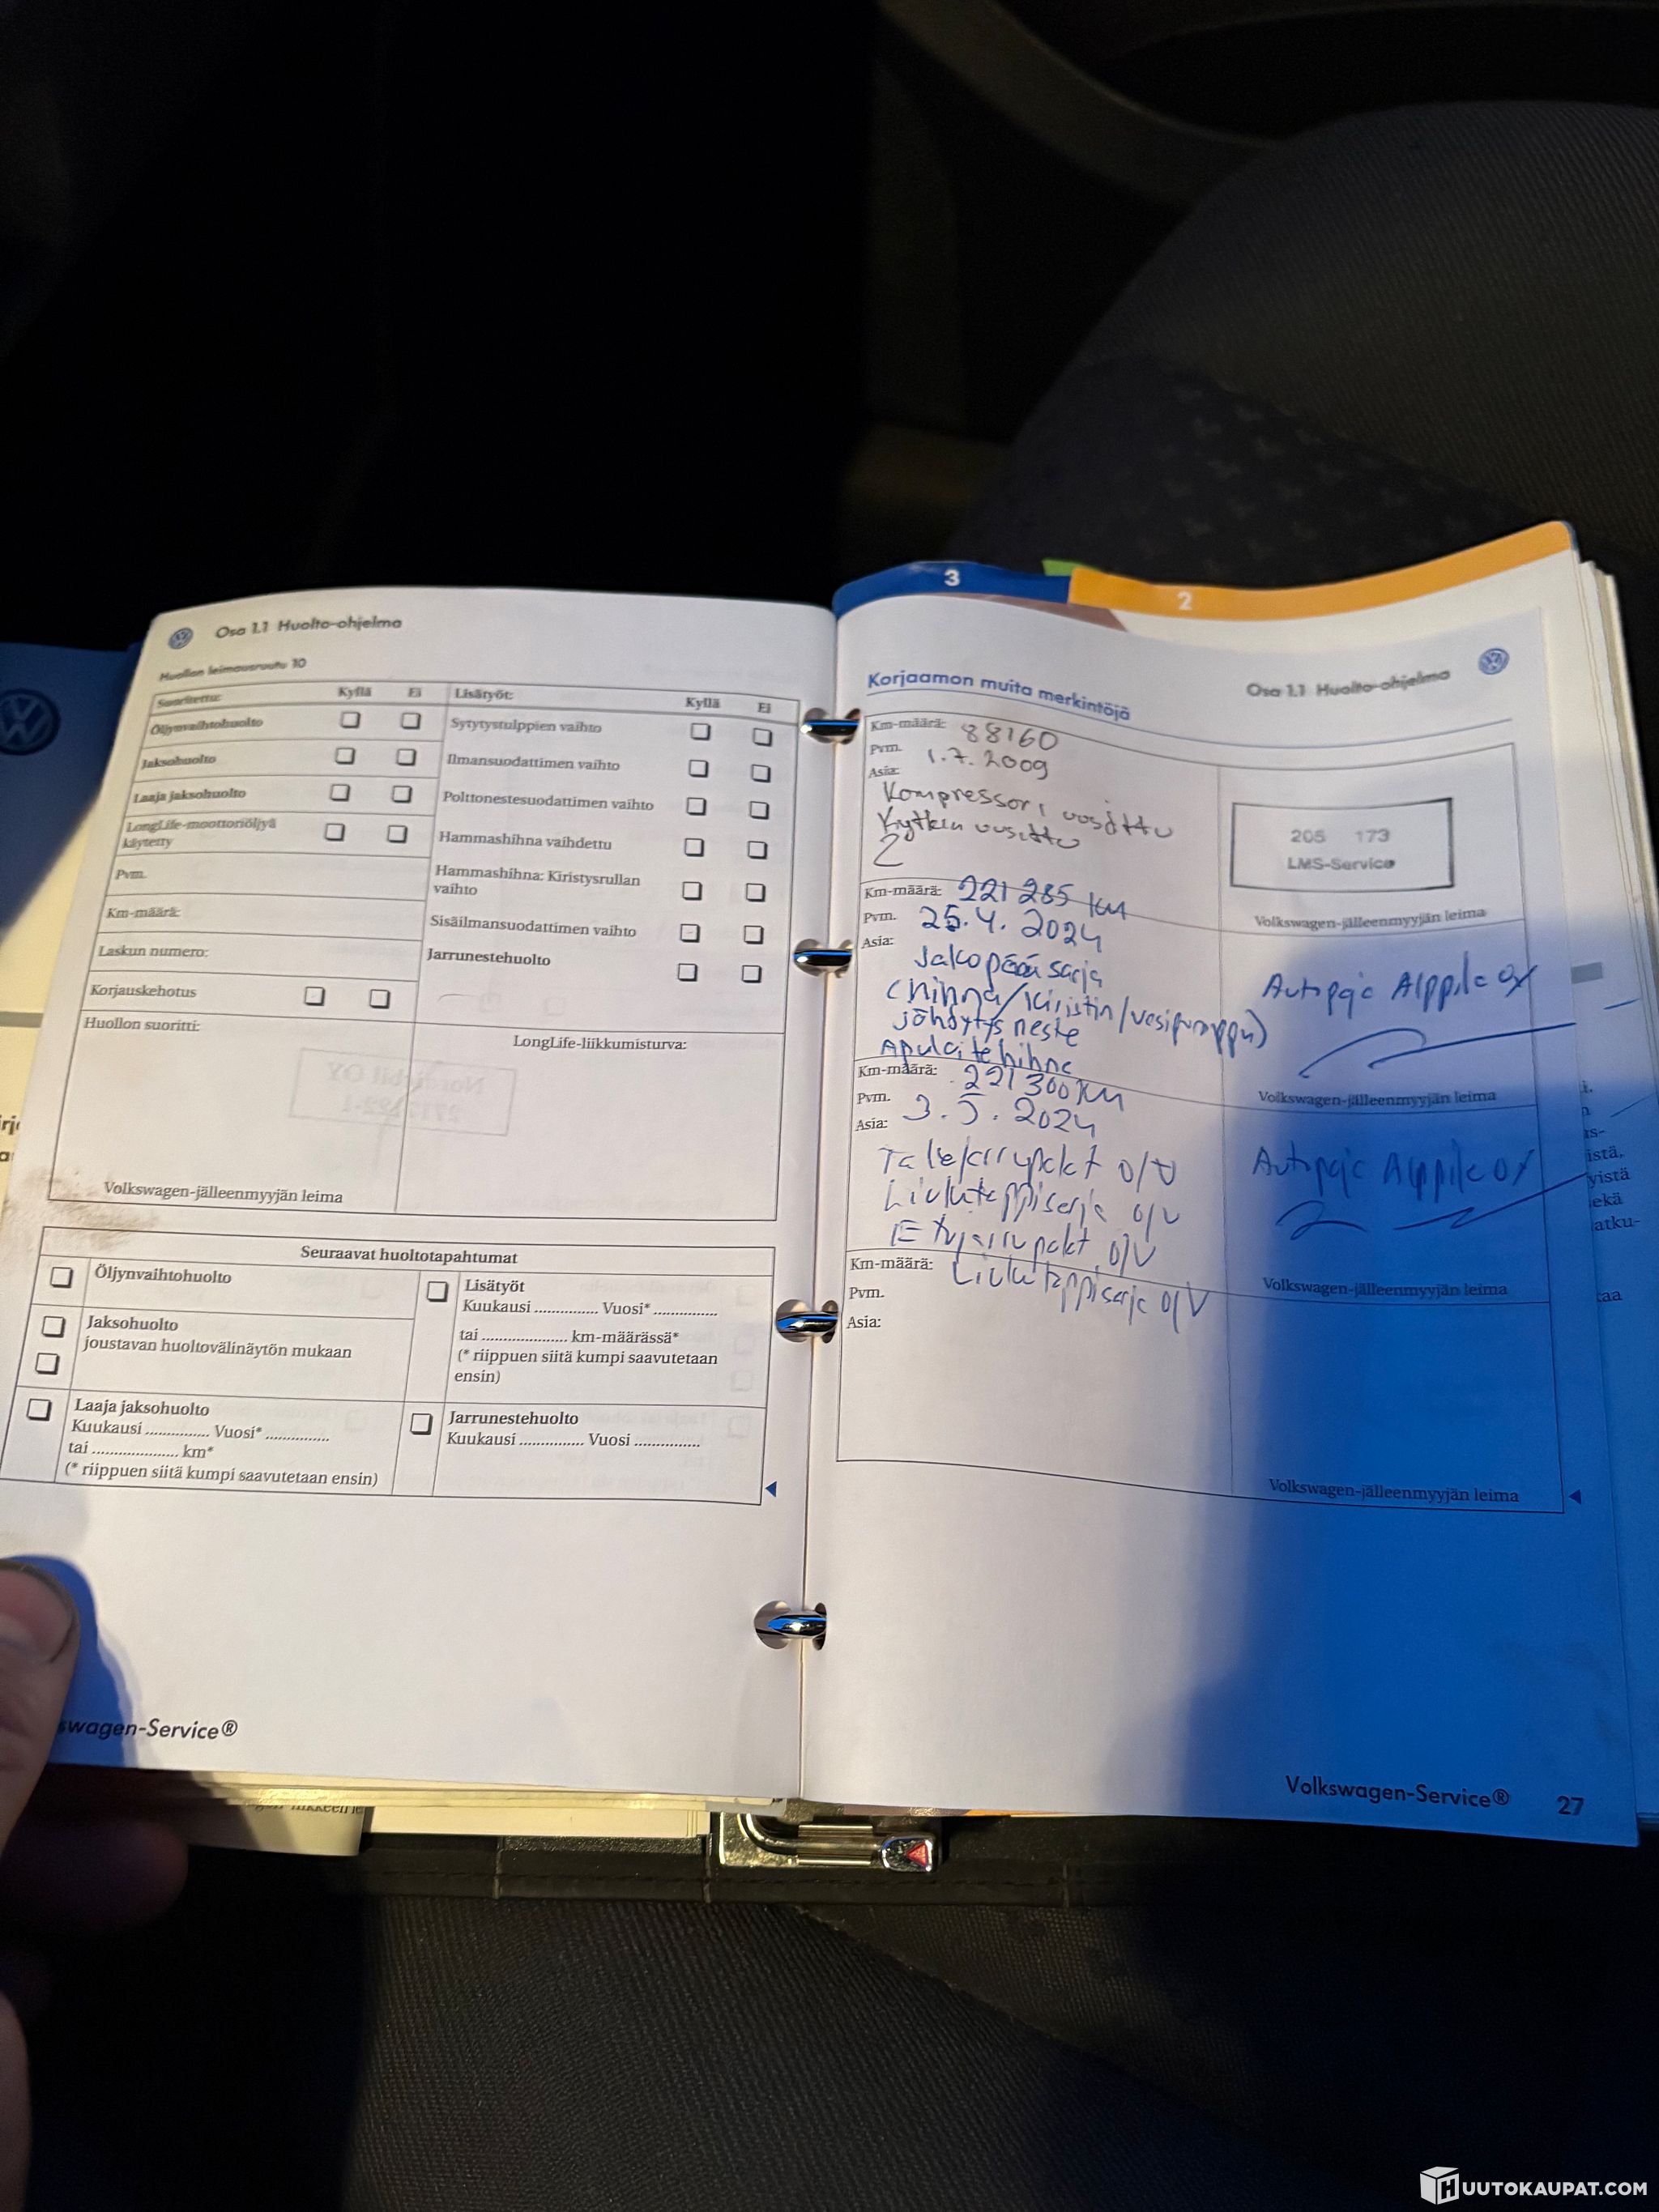 Osa 1.1 Huolto-ohjelma
Huollon leimausruutu 10
Suoritettu: Kyllä Ei
Öljynvaihtohuolto
Jaksohuolto
Laaja jaksohuolto
LongLife-moottoriöljyä
käytetty
Pvm.
Km-määrä:
Laskun numero:
Korjauskehotus
Huollon suoritti:
Volkswagen-jälleenmyyjän leima
Lisätyöt: Kyllä Ei
Sytytystulppien vaihto
Ilmansuodattimen vaihto
Polttonestesuodattimen vaihto
Hammashihna vaihdettu
Hammashihna: Kiristysrullan
vaihto
Sisäilmansuodattimen vaihto
Jarrunestehuolto
LongLife-liikkumisturva:
Seuraavat huoltotapahtumat
Öljynvaihtohuolto
Jaksohuolto
joustavan huoltovälinäytön mukaan
Laaja jaksohuolto
Kuukausi ............... Vuosi* ...............
tai .................... km*
(* riippuen siitä kumpi saavutetaan ensin)
Lisätyöt
Kuukausi ............... Vuosi* ...............
tai .................... km-määrässä*
(* riippuen siitä kumpi saavutetaan
ensin)
Jarrunestehuolto
Kuukausi ............... Vuosi ...............
swagen-Service®
3
2
Osa 1.1 Huolto-ohjelma
Korjaamon muita merkintöjä
Km-määrä: 88160
Pvm. 1.7.2009
Asia:
Kompressori uusittu
Kytkin uusittu
205 173
LMS-Service
Volkswagen-jälleenmyyjän leima
Km-määrä: 221 285 km
Pvm. 25.4.2024
Asia: Jakopääsarja
(hihna/kiristin/vesipumppu)
jäähdytysneste
Apulaitehihna
Autopaja Alppila oy
Volkswagen-jälleenmyyjän leima
Km-määrä: 221 300 km
Pvm. 3.5.2024
Asia:
Takajarrupalat o/v
Liukutappisarja o/v
Etujarrupalat o/v
Liukutappisarja o/v
Autopaja Alppila oy
Volkswagen-jälleenmyyjän leima
Km-määrä:
Pvm.
Asia:
Volkswagen-jälleenmyyjän leima
Volkswagen-Service® 27
HUUTOKAUPAT.COM